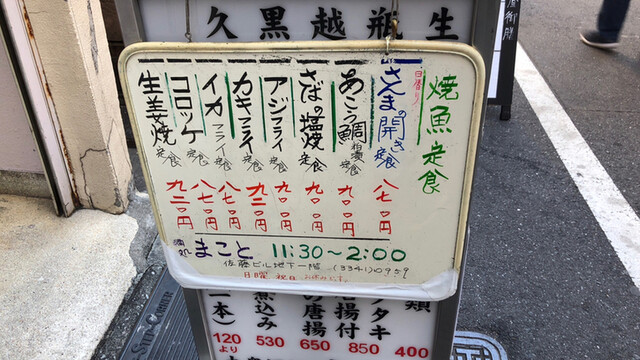 生
瓶
越
黒
久
焼魚定食
日替り
さんまの開き定食 八七〇円
あこう鯛粕漬定食 九〇〇円
さばの塩焼定食 九〇〇円
アジフライ定食 九〇〇円
カキフライ定食 九二〇円
イカフライ定食 八七〇円
コロッケ定食 八七〇円
生姜焼定食 九二〇円
酒処 まこと 11:30～2:00
佐藤ビル地下一階 (3341)0959
日曜 祝日 お休みです。
類
タキ 400
揚付 850
の唐揚 650
煮込み 530
一本) 120より